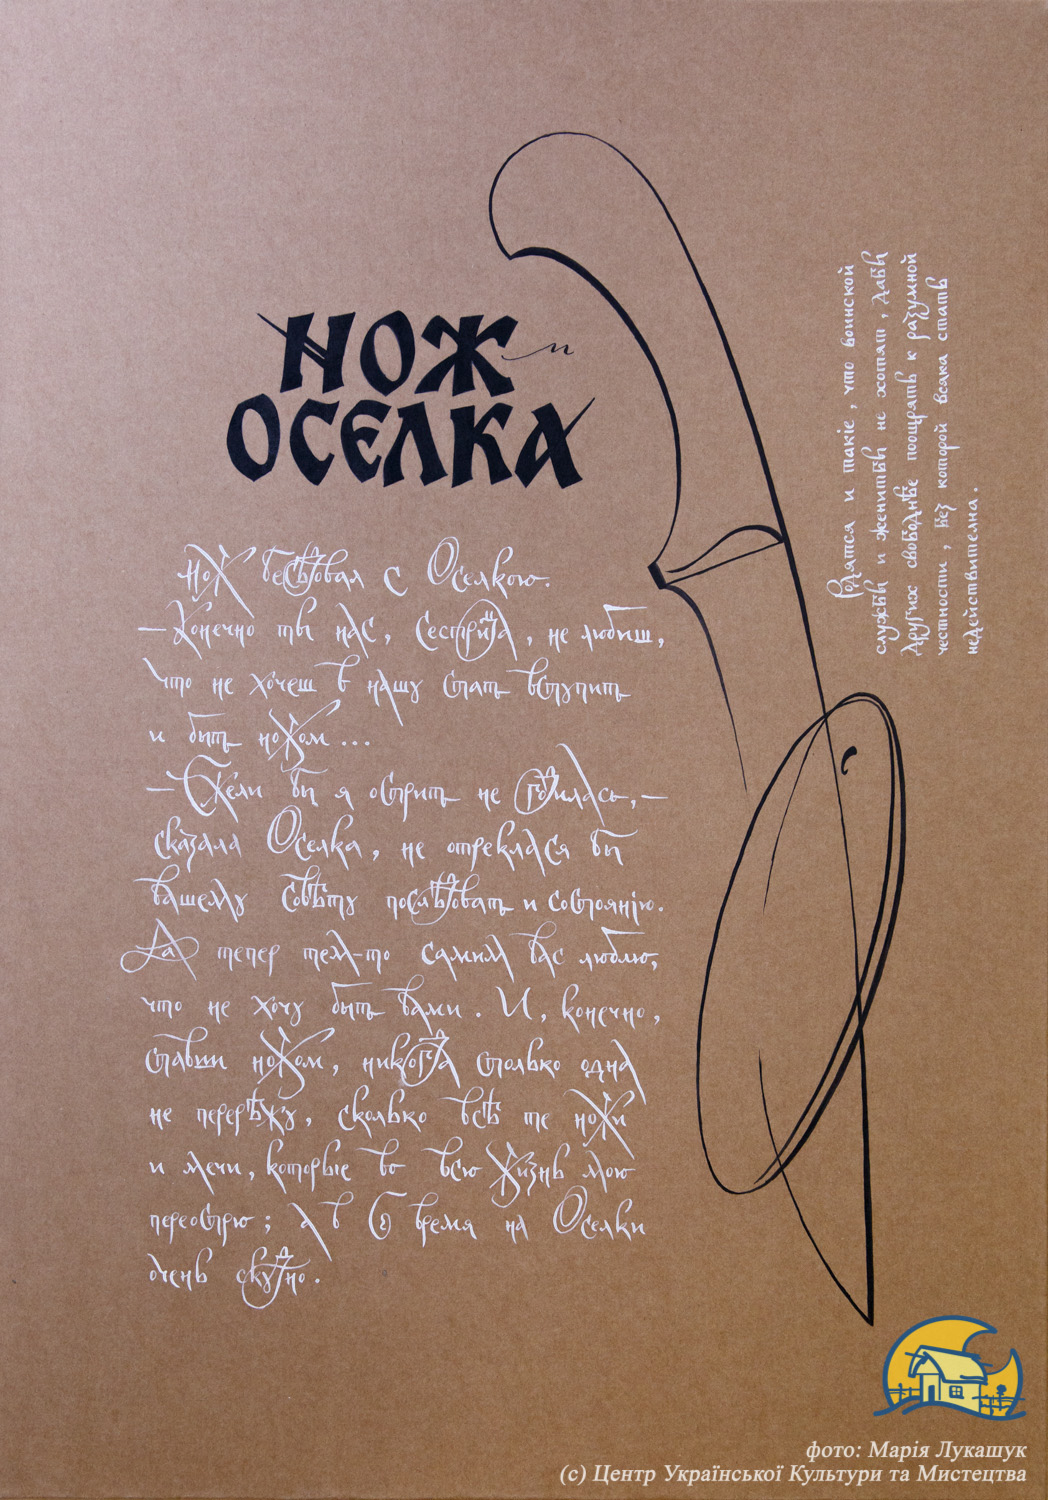 НОЖ и
ОСЕЛКА
Нож бесѣдовал с Оселкою.
— Конечно ты нас, Сестрица, не любиш,
что не хочеш в нашу стать вступить
и быть ножом...
— Ежели бы я острить не годилась, —
сказала Оселка, не отреклася бы
вашему совѣту послѣдовать и состоянію.
Да тепер тем-то самим вас люблю,
что не хочу быть вами. И, конечно,
ставши ножом, никогда столько одна
не перерѣжу, сколько всѣ те ножи
и мечи, которые во всю жизнь мою
переострю; а в сіе время на Оселки
очень скудно.
Родятся и такіе, что воинской
службы и женитьбы не хотят, дабы
других свободнѣе поощрять к разумной
честности, без которой всяка стать
недействителна.
фото: Марія Лукашук
(с) Центр Української Культури та Мистецтва